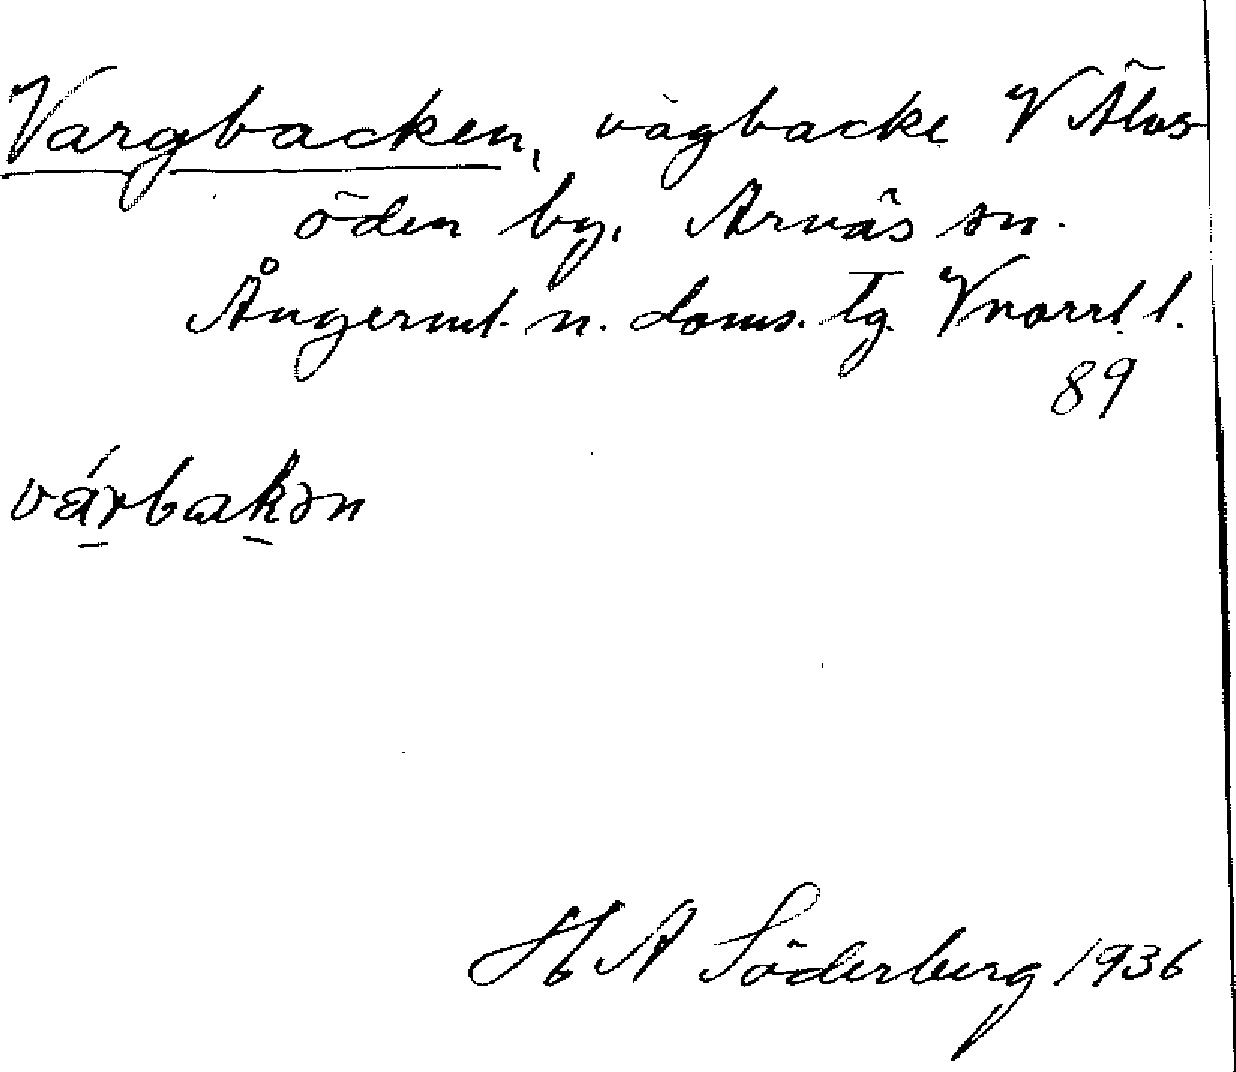 Vargbacken, vägbacke V Älvs-
öden by, Arnäs sn.
Ångerml. n. doms. tg. Vnorrl. l.
89
várbakən
H A Söderberg 1936